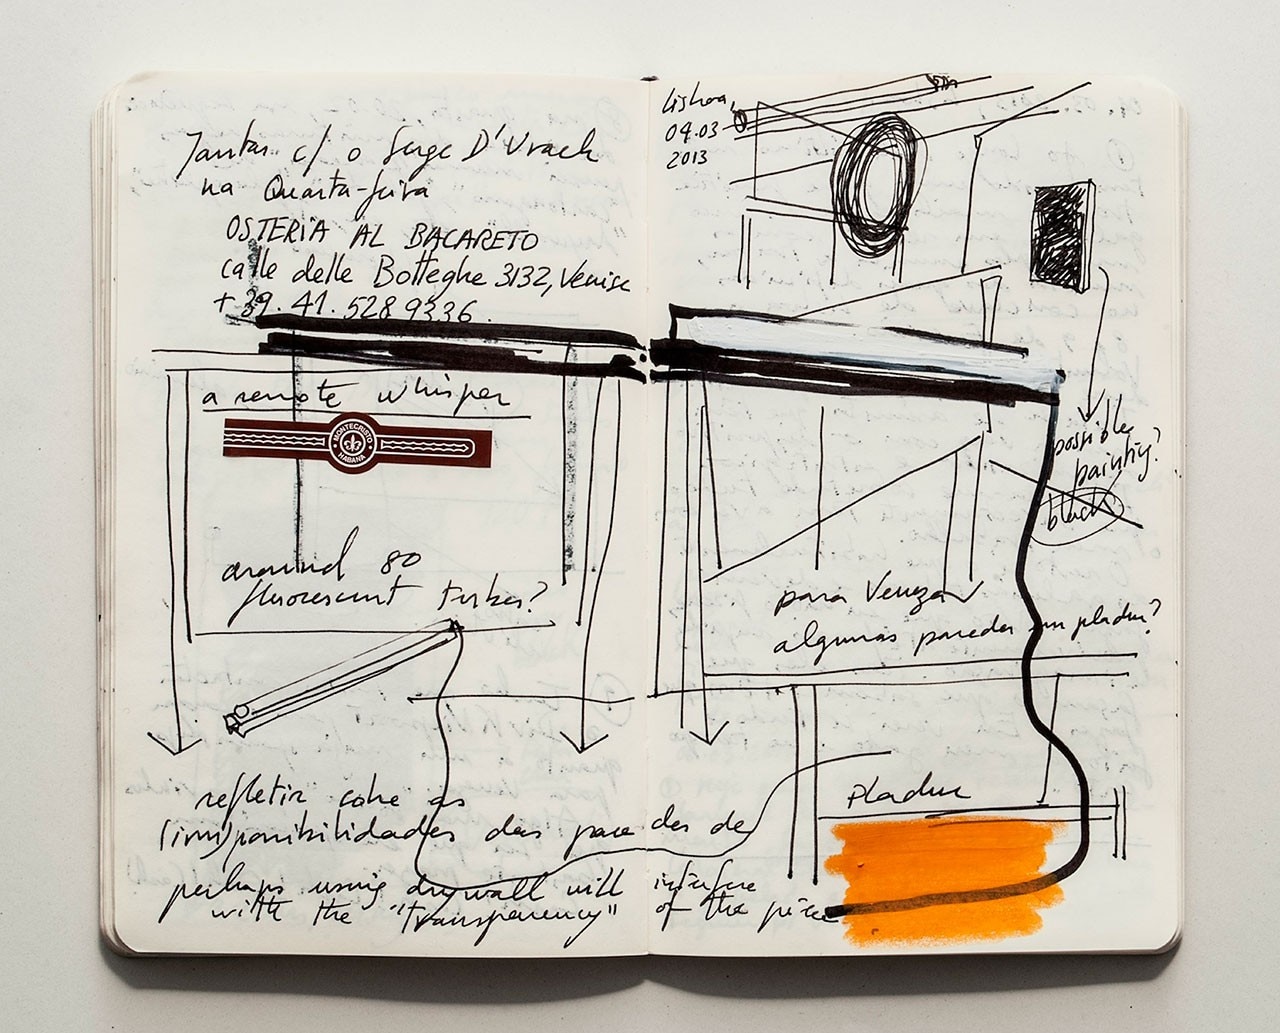 Jantar c/ o Serge D'Urach
na Quarta-feira
OSTERIA AL BACARETO
calle delle Botteghe 3132, Venise
+39.41.5289336.
a remote whisper
MONTECRISTO
HABANA
around 80
fluorescent tubes?
refletir sobre as
(im)possibilidades das pare
perhaps using drywall will
with the "transparency"
Lisboa,
04.03
2013
possible
painting?
black
para Veneza
algumas paredes em pladur?
pladur
des de
interfere
of the piece